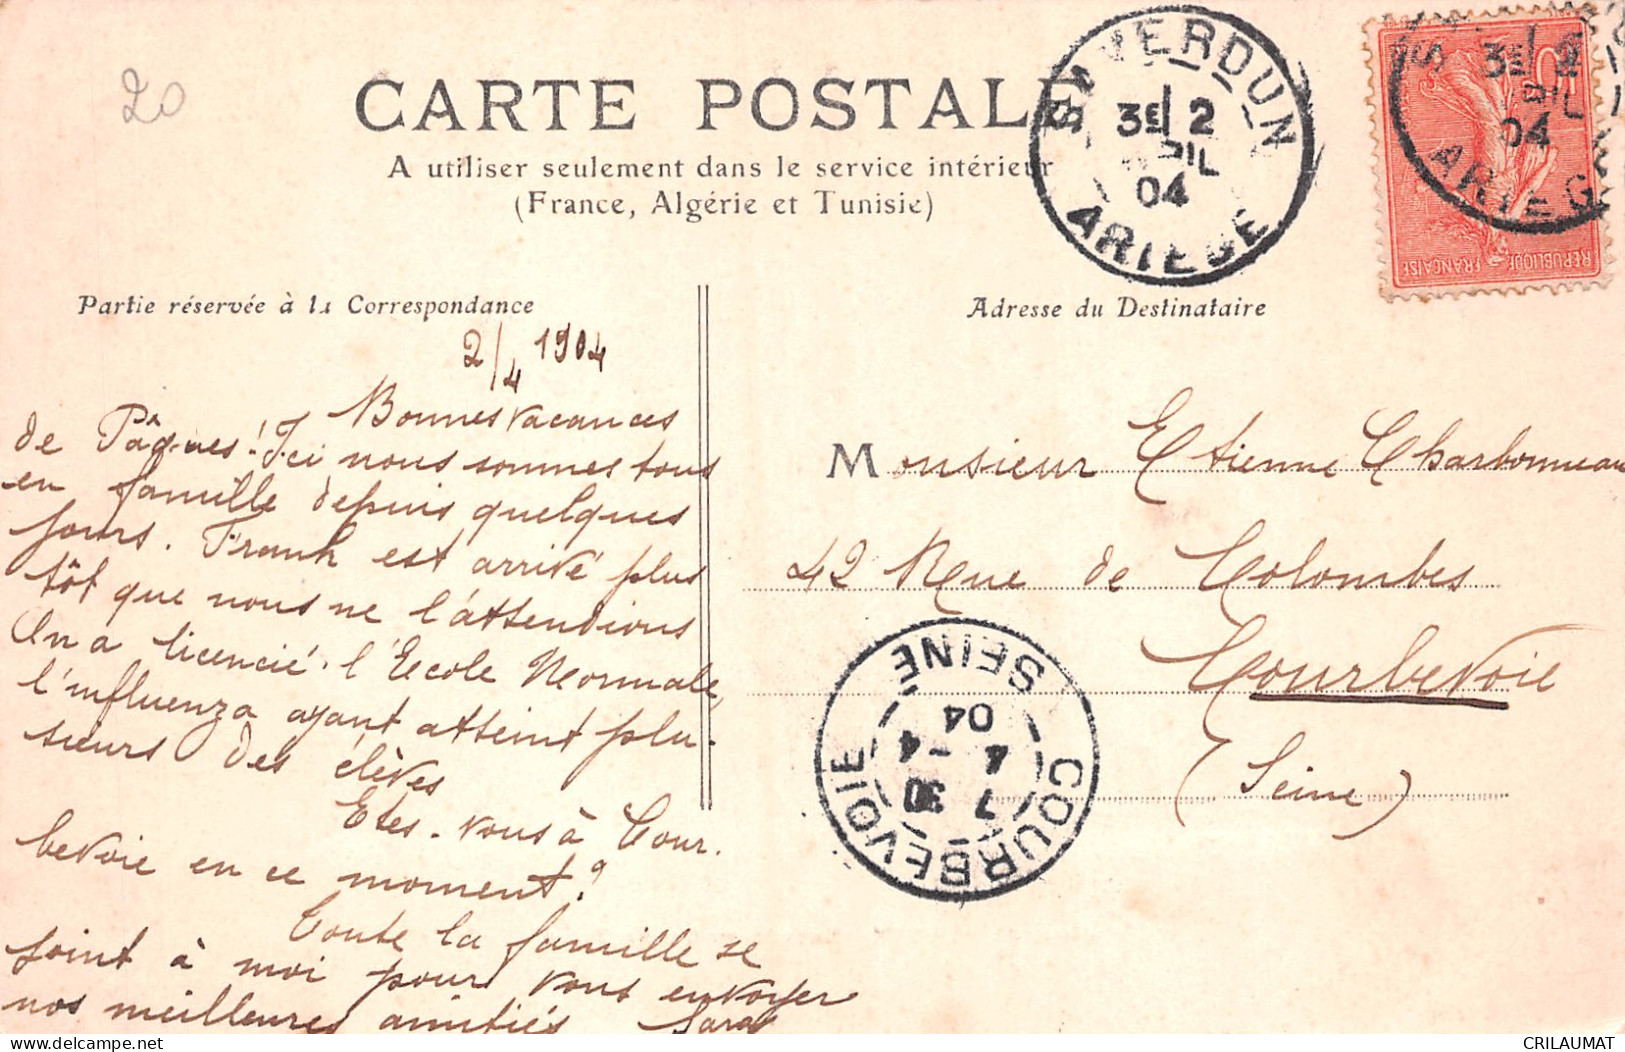 20
CARTE POSTALE
A utiliser seulement dans le service intérieur
(France, Algérie et Tunisie)
SAVERDUN
3E 2
AVRIL
04
ARIEGE
3E 2
RIL
04
ARIEG
REPUBLIQUE FRANÇAISE
Partie réservée à la Correspondance
2/4 1904
Bonnes vacances
de Pâques! Ici nous sommes tous
en famille depuis quelques
jours. Frank est arrivé plus
tôt que nous ne l'attendions
On a licencié l'Ecole Normale,
l'influenza ayant atteint plu-
sieurs des élèves
Etes-vous à Cour-
bevoie en ce moment?
Toute la famille se
joint à moi pour vous envoyer
nos meilleures amitiés Sara
Adresse du Destinataire
Monsieur Etienne Charbonneau
42 Rue de Colombes
Courbevoie
(Seine)
COURBEVOIE
7 30
4 -4
04
SEINE
delcampe.net
CRILAUMAT